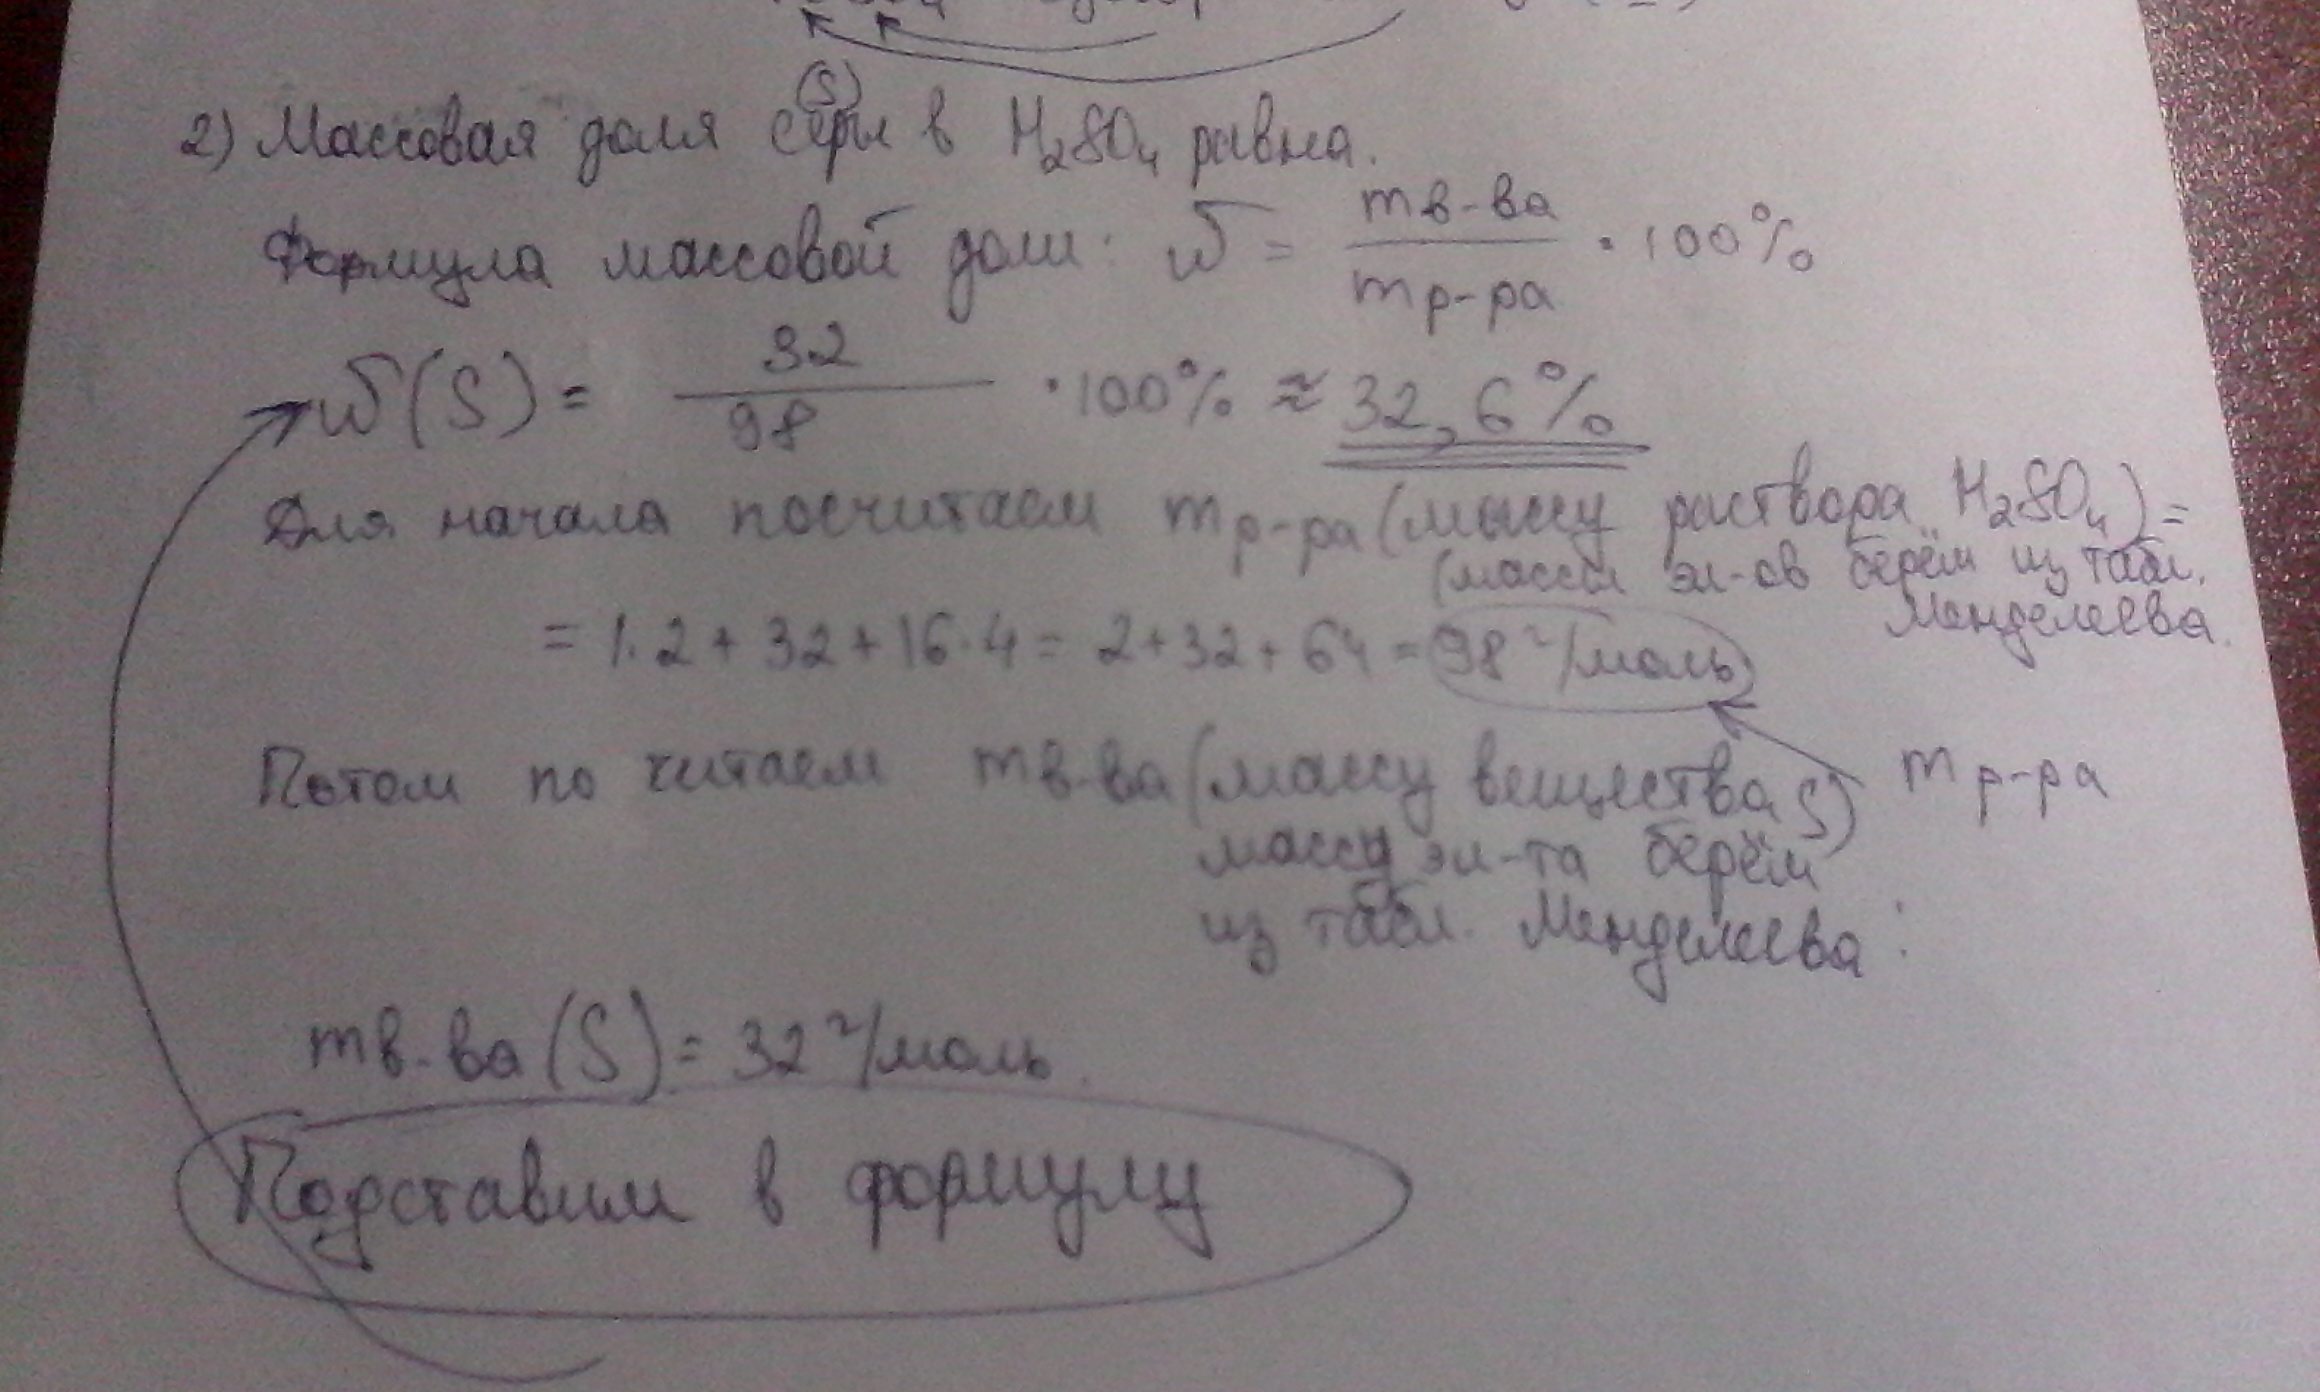 (S)
2) Массовая доля серы в H₂SO₄ равна.
Формула массовой доли: W = mв-ва / mр-ра · 100%
W(S) = 32 / 98 · 100% ≈ 32,6%
Для начала посчитаем mр-ра (массу раствора H₂SO₄) =
(массы эл-ов берём из табл.
Менделеева.
= 1·2 + 32 + 16·4 = 2 + 32 + 64 = 98 г/моль
Потом по читаем mв-ва (массу вещества S) mр-ра
массу эл-та берём
из табл. Менделеева:
mв-ва (S) = 32 г/моль.
Подставим в формулу